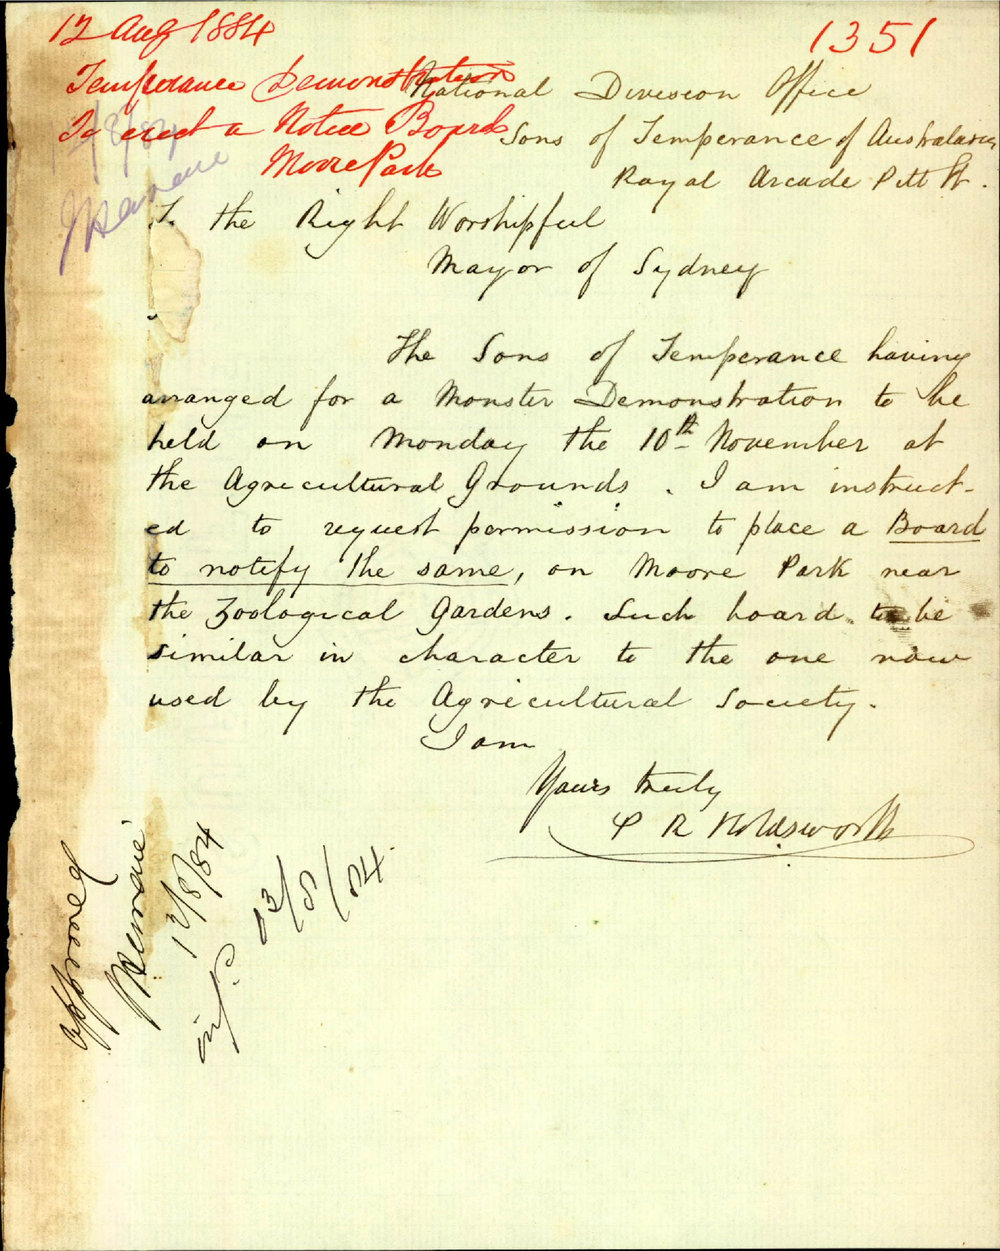 12 Aug 1884
1351
Temperance Demonstration
To erect a Notice Board
Moore Park
12/8/84
National Division Office
Sons of Temperance of Australasia
Royal Arcade Pitt St.
To the Right Worshipful
Mayor of Sydney
The Sons of Temperance having
arranged for a Monster Demonstration to be
held on Monday the 10th November at
the Agricultural Grounds. I am instruct-
ed to request permission to place a Board
to notify the same, on Moore Park near
the Zoological Gardens. Such board to be
similar in character to the one now
used by the Agricultural Society.
I am
Yours truly
P R Holdsworth
approved
13/8/84
13/8/84